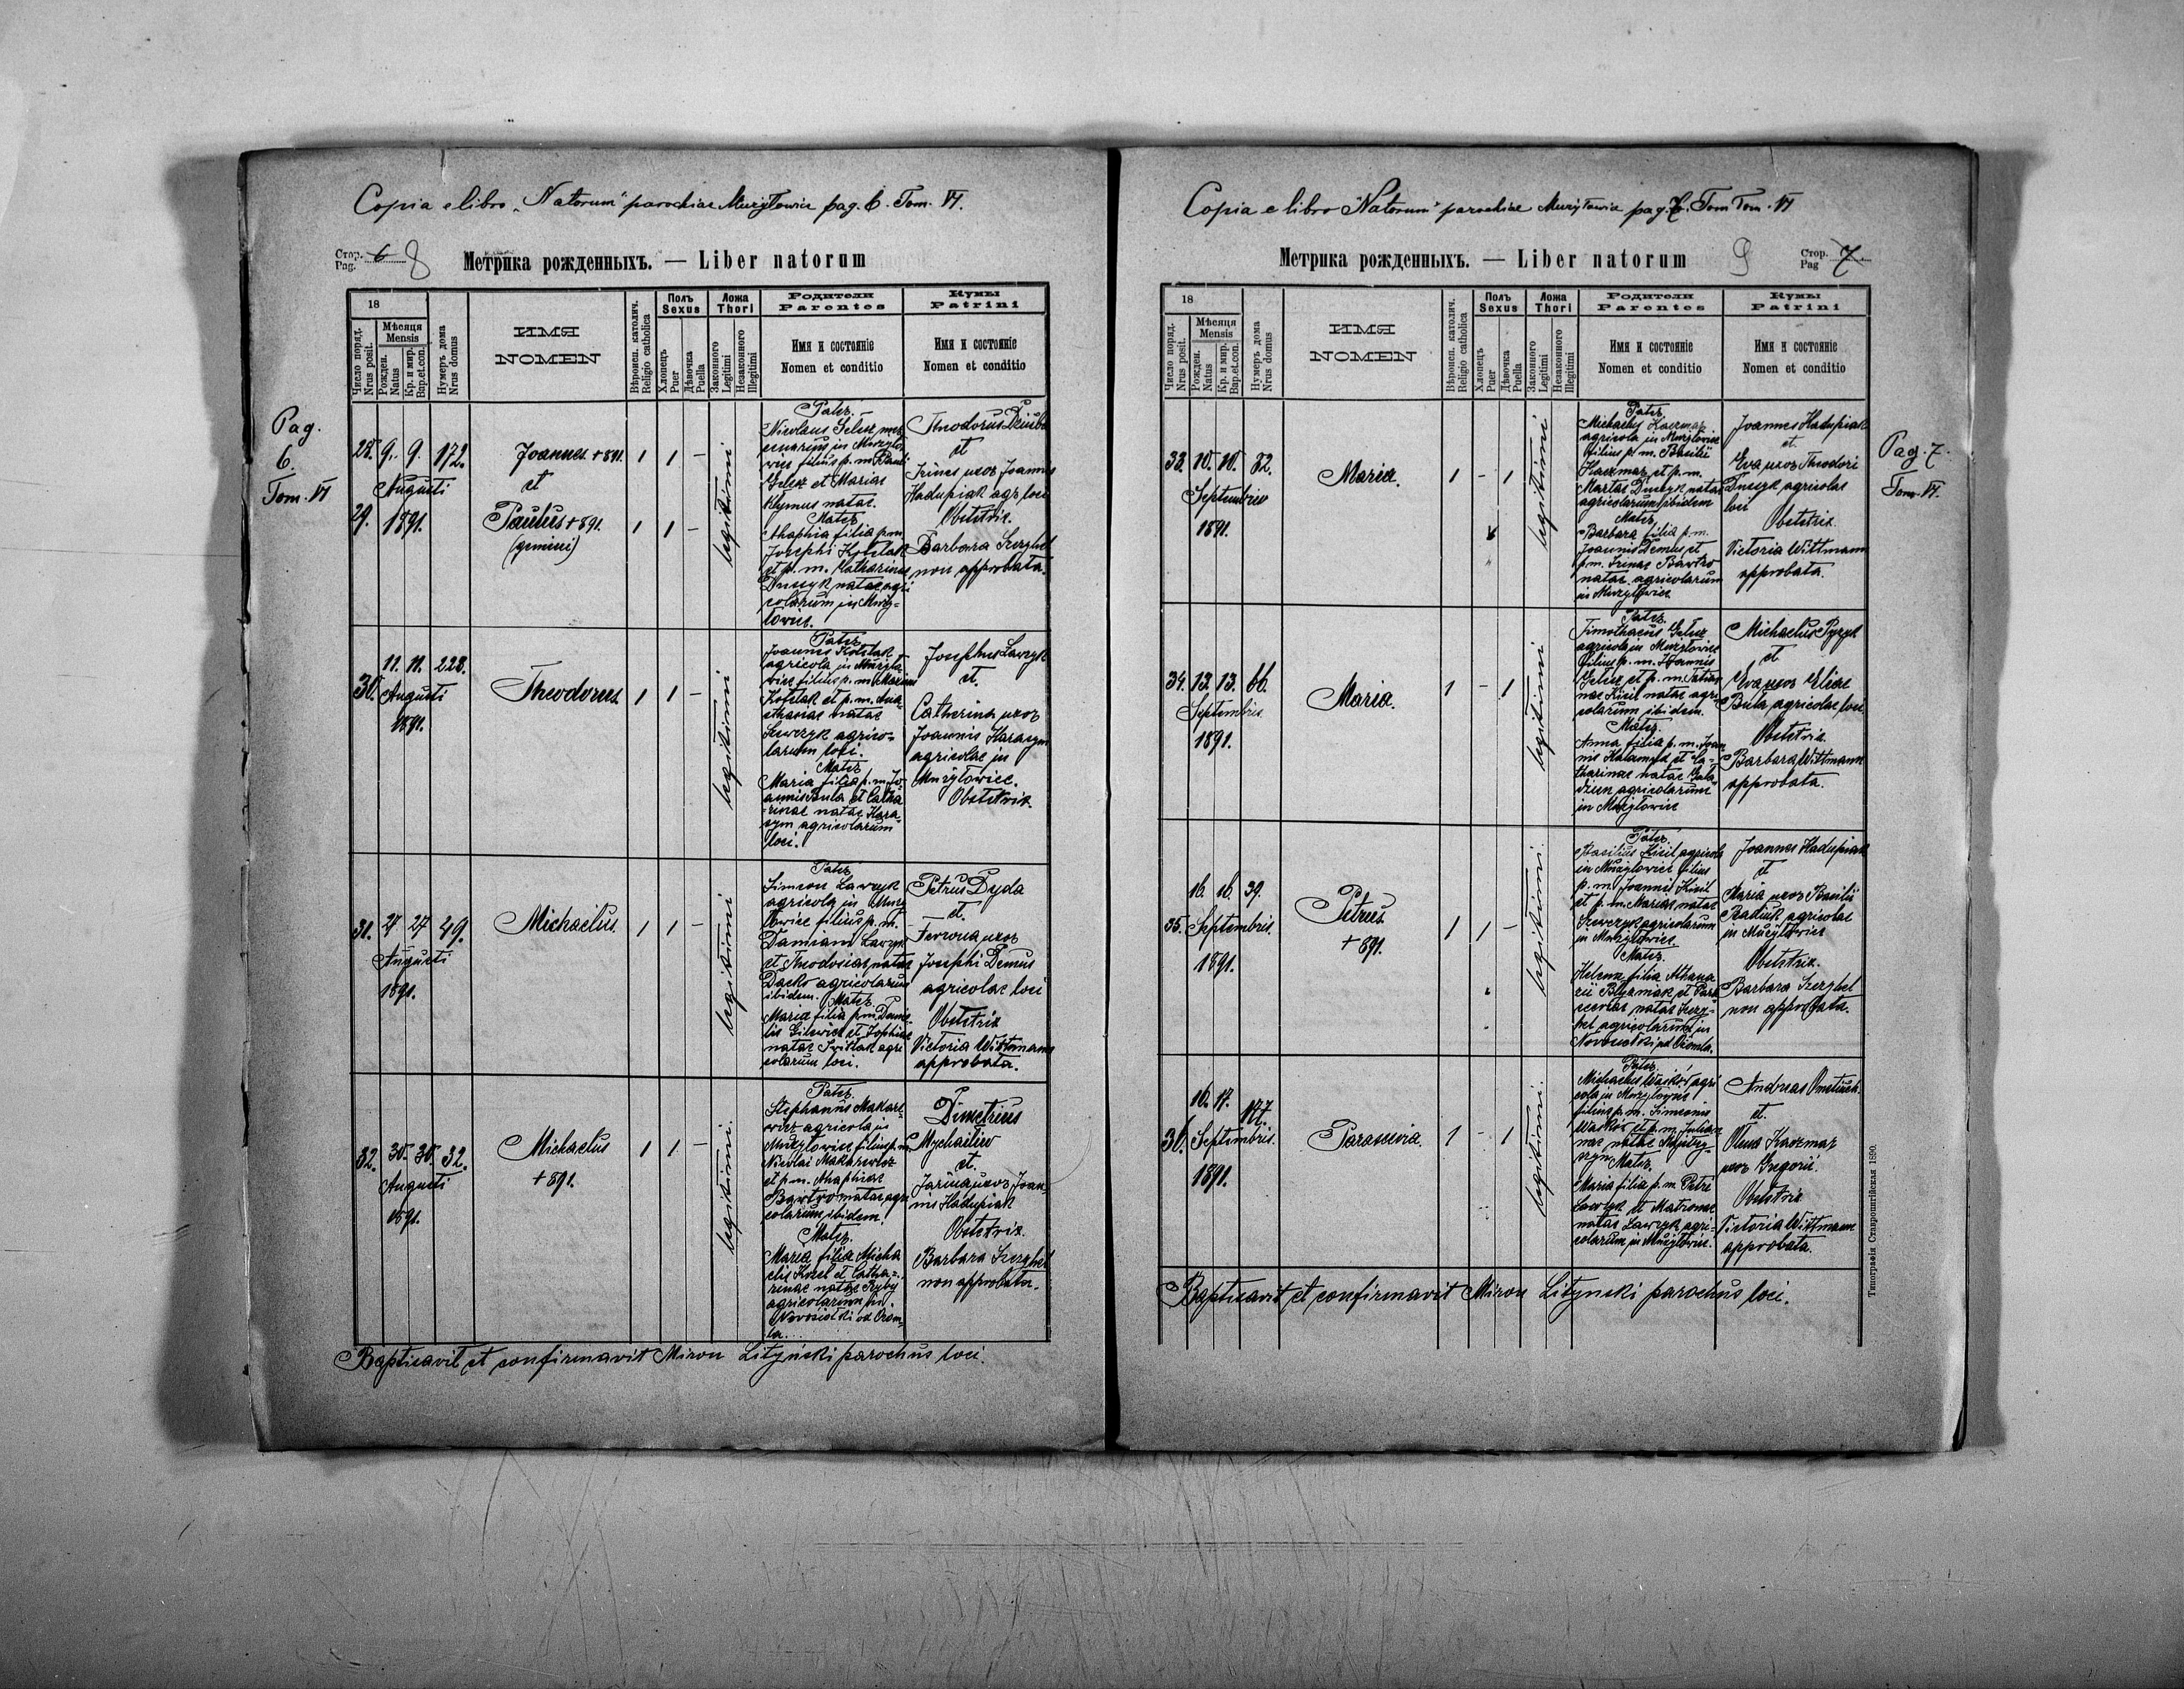 Copia e libro „Natorum" parochiae Mużyłowice pag. 6. Tom. VI.
Стор. 6 8
Pag.
Метрика рожденныхъ. — Liber natorum
18
Число поряд.
Nrus posit.
Мѣсяця
Mensis
Рожден.
Natus
Кр. и мир.
Bap.et.con.
Нумеръ дома
Nrus domus
ИМЯ
NOMEN
Вѣроисп. католич.
Religio catholica
Полъ
Sexus
Хлопецъ
Puer
Дѣвочка
Puella
Ложа
Thori
Законного
Legitimi
Незаконного
Illegitimi
Родители
Parentes
Имя и состояніе
Nomen et conditio
Кумы
Patrini
Имя и состояніе
Nomen et conditio
Pag.
6.
Tom. VI
28. 9. 9. 172.
Augusti
29. 1891.
Joannes + 891. 1 1 -
et
Paulus + 891. 1 1 -
(gemini)
legitimi
Pater
Nicolaus Gelesz mer
cenarius in Mużyło
wice filius p. m. Pauli
Gelesz et Mariae
Klymus natae.
Mater
Ahaphia filia p. m.
Josephi Kotelak
et p. m. Catharinae
Duszyk natae agri
colarum in Muży-
łowice.
Theodorus Dziuba
et
Irina uxor Joannis
Hadupiak agr. loci
Obstetrix.
Barbara Szezghel
non approbata.
30. 11. 11. 228.
Augusti
1891.
Theodorus 1 1 -
legitimi
Pater
Joannes Kotelak
agricola in Mużyło
wice filius p. m. Maximi
Kotelak et p. m. Ana
sthasiae natae
Szewczyk agrico-
larum loci.
Mater
Maria filia p. m. Jo
annis Bula et Catha
rinae natae Hara
sym agricolarum
loci.
Josephus Lawryk
et.
Catherina uxor
Joannis Harasym
agricolae in
Mużyłowice.
Obstetrix
31. 27 27 49.
Augusti
1891.
Michaelus 1 1 -
legitimi
Pater
Simeon Lawryk
agricola in Muży
łowice filius p. m.
Damiani Lawryk
et Theodosiae natae
Dacko agricolarum
ibidem. Mater
Maria filia p. m. Dani
lis Gilewicz et Sophiae
natae Switlak agri
colarum loci.
Petrus Dyda
et.
Ferrona uxor
Josephi Demus
agricolae loci
Obstetrix
Victoria Wittmann
approbata.
32. 30. 30. 32.
Augusti
1891.
Michaelus 1 1 -
+ 891.
legitimi.
Pater
Stephanus Makare
wicz agricola in
Mużyłowice filius p. m.
Nicolai Makarewicz
et p. m. Ahaphiae
Bawtro natae agri
colarum ibidem.
Mater.
Maria filia Micha
elis Kozel et Catha-
rinae natae Ryby
agricolarum in
Nowosiołki od Ozom-
la.
Dimetrius
Mychailiw
et.
Jarina uxor Joan-
nis Hadupiak
Obstetrix.
Barbara Szezghel
non approbata.
Baptisavit et confirmavit Miron Lityński parochus loci.
Copia e libro Natorum" parochiae Mużyłowice pag. 7. Tom Tom. VI
Метрика рожденныхъ. — Liber natorum
9 Стор. 7.
Pag
18
Число поряд.
Nrus posit.
Мѣсяця
Mensis
Рожден.
Natus
Кр. и мир.
Bap.et.con.
Нумеръ дома
Nrus domus
ИМЯ
NOMEN
Вѣроисп. католич.
Religio catholica
Полъ
Sexus
Хлопецъ
Puer
Дѣвочка
Puella
Ложа
Thori
Законного
Legitimi
Незаконного
Illegitimi
Родители
Parentes
Имя и состояніе
Nomen et conditio
Кумы
Patrini
Имя и состояніе
Nomen et conditio
Pag. 7.
Tom. VI.
33. 10. 10. 32.
Septembris
1891.
Maria. 1 - 1
legitimi
Pater
Michaelus Kaczmar
agricola in Mużyłowice
filius p. m. Basilii
Kaczmar et p. m.
Martae Duszyk natae
agricolarum ibidem
Mater
Barbara filia p. m.
Joannis Demus et
p. m. Irenae Bawtro
natae agricolarum
in Mużyłowice
Joannes Hadupiak
et
Eva uxor Theodori
Duszyk agricolae
loci
Obstetrix.
Victoria Wittmann
approbata.
34. 13. 13. 66.
Septembris.
1891.
Maria. 1 - 1
legitimi
Pater
Timothaeus Gelesz
agricola in Mużyłowice
filius p. m. Joannis
Gelesz et p. m. Tatian
nae Kisil natae agri
colarum ibidem.
Mater.
Anna filia p. m. Joan
nis et Ca-
tharinae natae Gala
dzun agricolarum
in Mużyłowice
Michaelus Pyzyk
et
Eva uxor Eliae
Bula agricolae loci.
Obstetrix
Barbara Wittmann
approbata.
35. 16. 16. 39.
Septembris.
1891.
Petrus 1 1 -
+ 891.
legitimi.
Pater
Basilius Kisil agricola
in Mużyłowice filius
p. m. Joannis Kisil
et p. m. Mariae natae
Szewczyk agricolarum
in Mużyłowice.
Mater.
Helena filia Athana
sii et Para
scevae natae Szezg-
hel agricolarum in
Nowosiołki od Ozomla.
Joannes Hadupiak
et
Maria uxor Basilii
Badiuk agricolae
in Mużyłowice
Obstetrix.
Barbara Szezghel
non approbata.
36. 16. 17. 177.
Septembris.
1891.
Parascevia. 1 - 1
legitimi.
Pater.
Michaelus Waśków agri
cola in Mużyłowice
filius p. m. Simeonis
Waśków et p. m. Julian
nae natae
Mater.
Maria filia p. m. Petri
Lawryk et Matronae
natae Lawryk agri-
colarum in Mużyłowice.
Andreas
et.
Olena Kaczmar
uxor Gregorii.
Obstetrix
Victoria Wittmann
approbata.
Baptisavit et confirmavit Miron Lityński parochus loci.
Типографія Ставропигійская 1890.